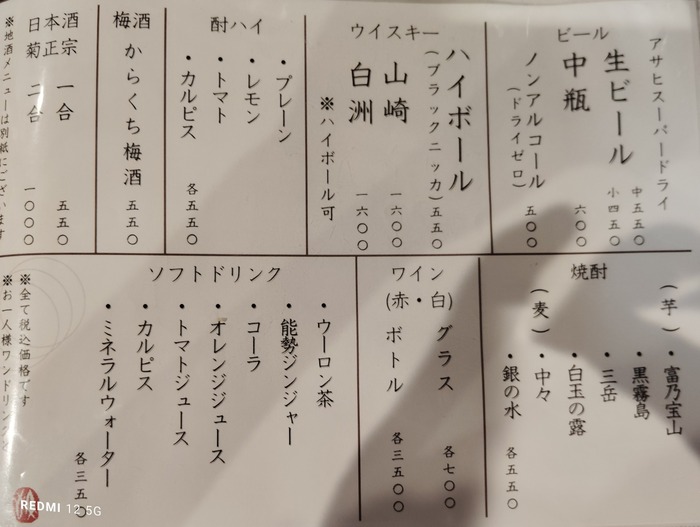 ビール
アサヒスーパードライ
生ビール 中五五〇 小四五〇
中瓶 六〇〇
ノンアルコール
(ドライゼロ) 五〇〇
ウイスキー
ハイボール
(ブラックニッカ) 五五〇
山崎 一六〇〇
白洲 一六〇〇
※ハイボール可
酎ハイ
・プレーン
・レモン
・トマト
・カルピス 各五五〇
梅酒
からくち梅酒 五五〇
日本酒
菊正宗 一合 五五〇
二合 一〇〇〇
※地酒メニューは別紙にございます
焼酎
(芋)
・富乃宝山
・黒霧島
・三岳
・白玉の露
(麦)
・中々
・銀の水 各五五〇
ワイン
(赤・白)
グラス 各七〇〇
ボトル 各三五〇〇
ソフトドリンク
・ウーロン茶
・能勢ジンジャー
・コーラ
・オレンジジュース
・トマトジュース
・カルピス
・ミネラルウォーター
各三五〇
※全て税込価格です
※お一人様ワンドリンク
REDMI 12 5G